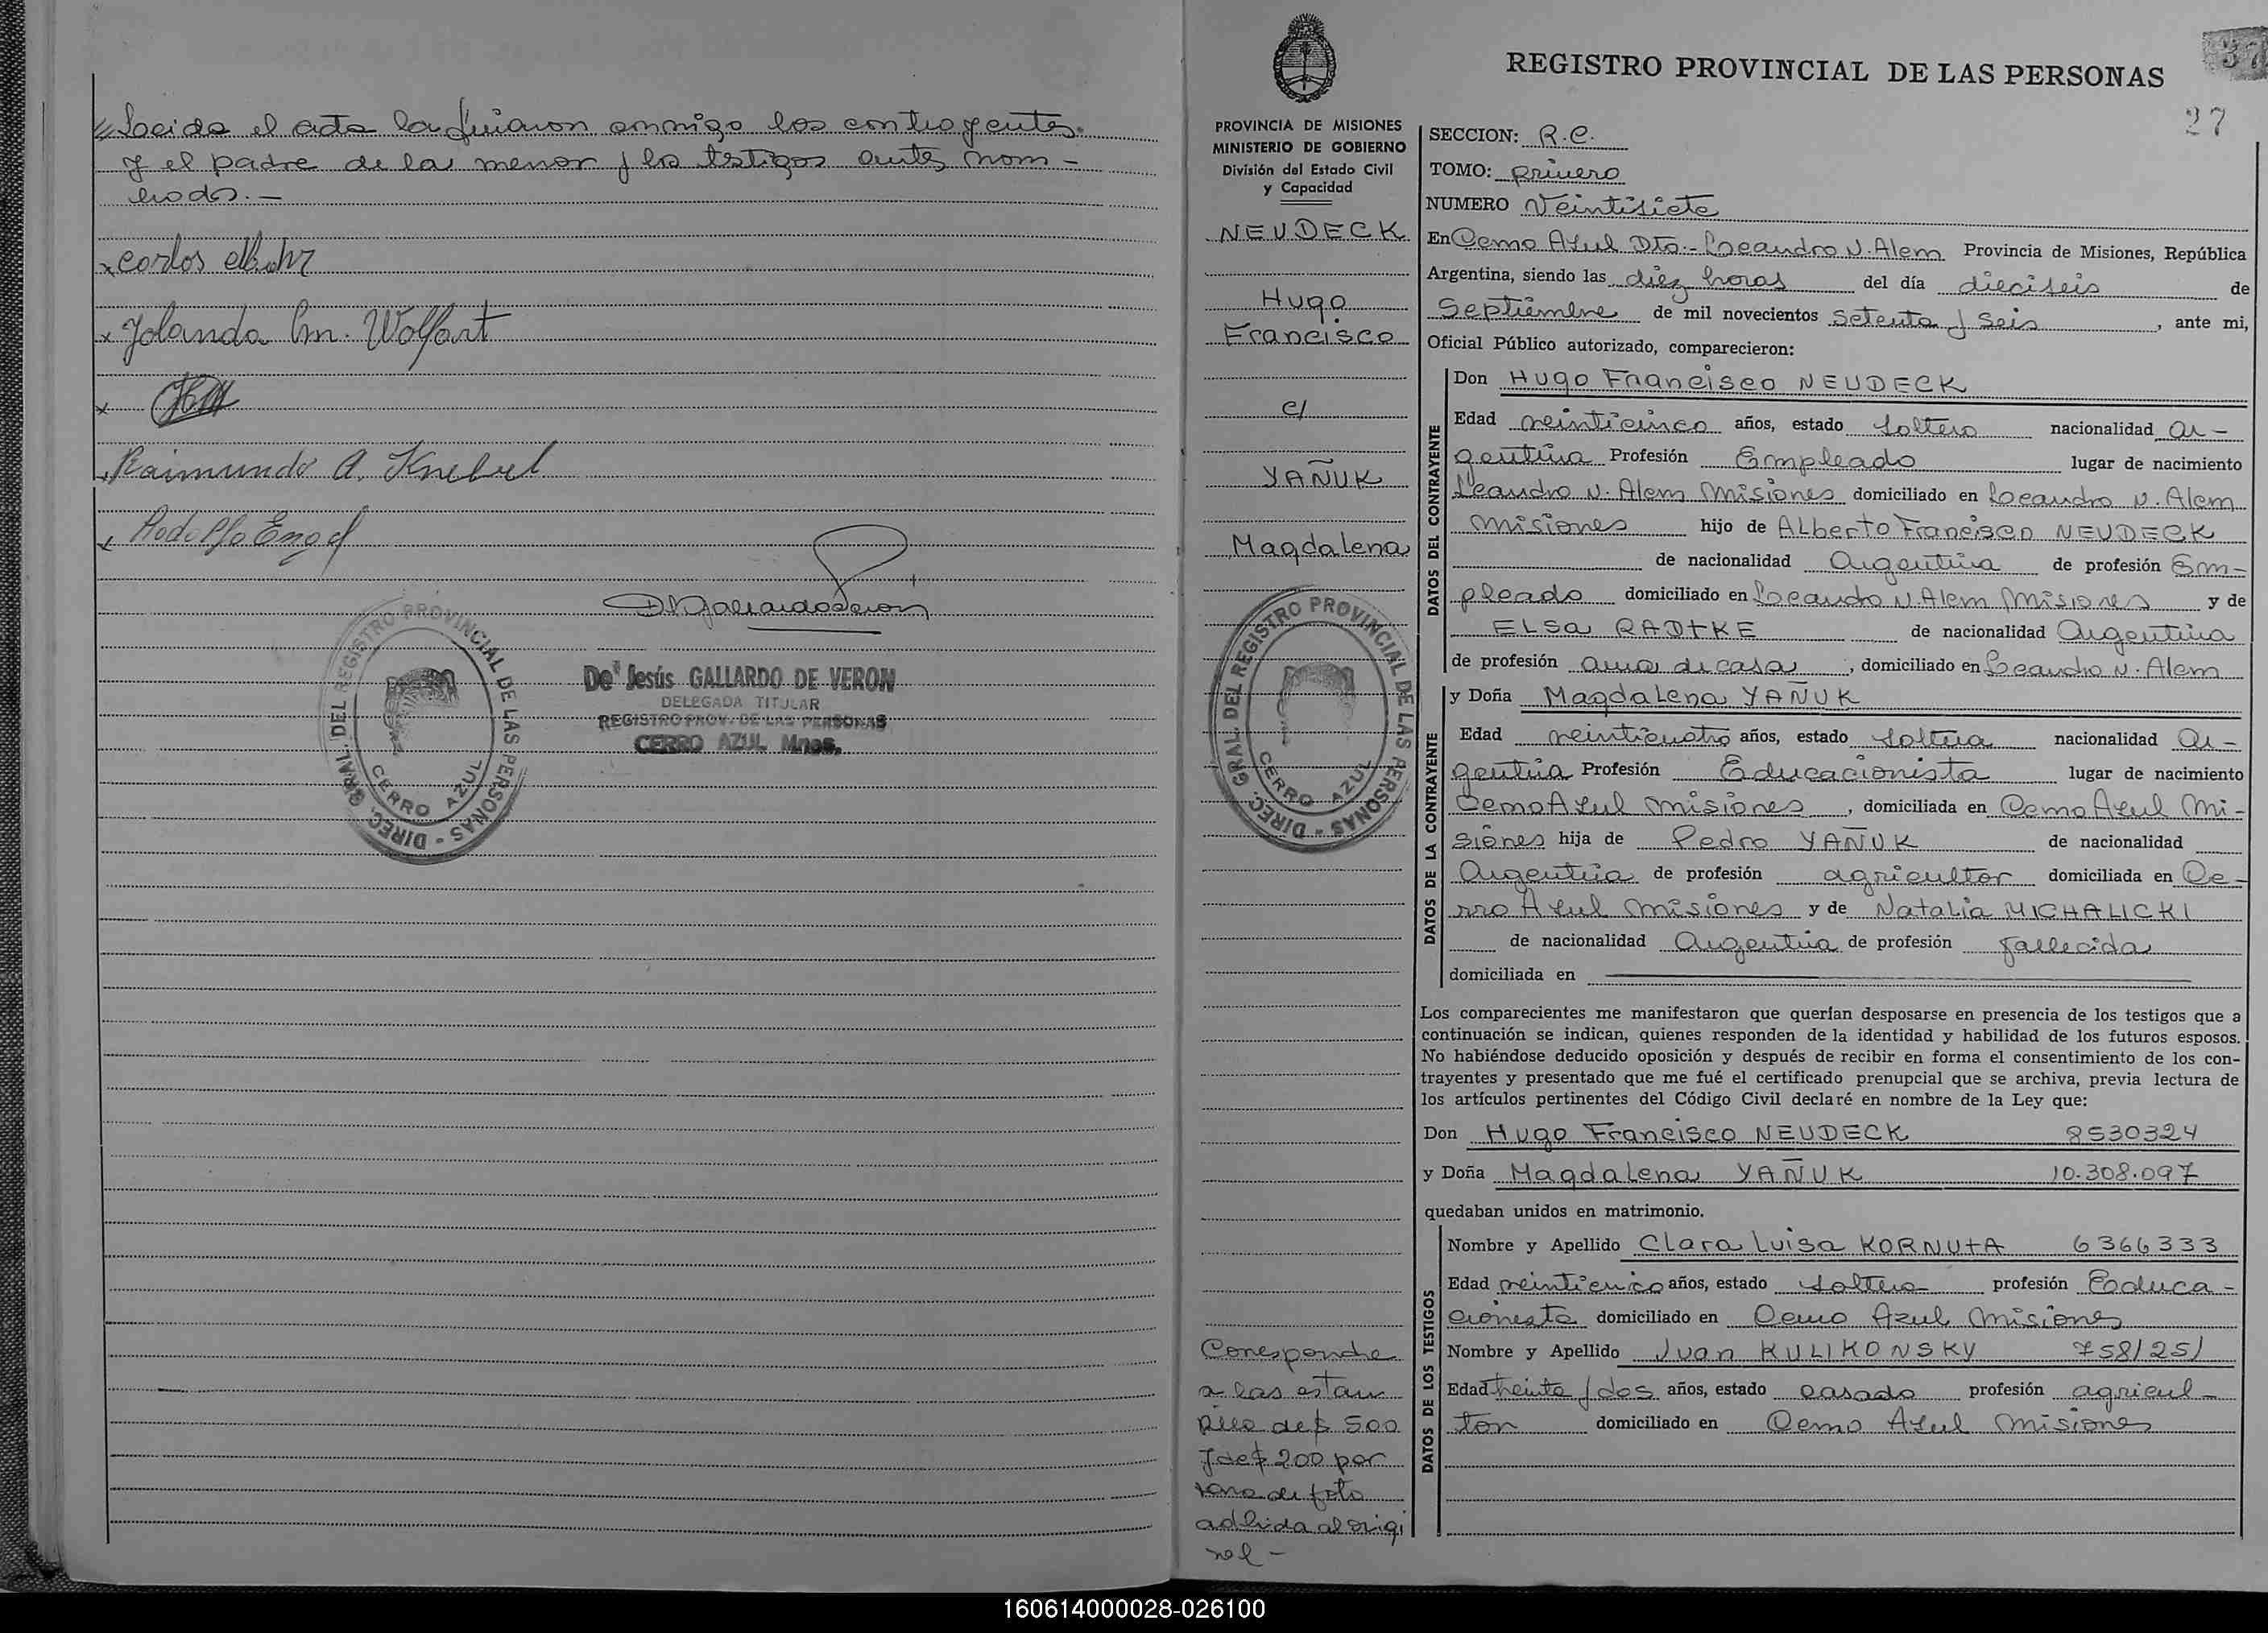 Leida el acta la firmaron conmigo los contrayentes
y el padre de la menor y los testigos antes nom-
brados.-
x Carlos
x Yolanda M. Wolfart
x
x Raimundo A. Knebel
x Rodolfo Engel
DIREC. GRAL. DEL REGISTRO PROVINCIAL DE LAS PERSONAS -
CERRO AZUL
De Jesús GALLARDO DE VERON
DELEGADA TITULAR
REGISTRO PROV. DE LAS PERSONAS
CERRO AZUL Mnes.
PROVINCIA DE MISIONES
MINISTERIO DE GOBIERNO
División del Estado Civil
y Capacidad
NEUDECK
Hugo
Francisco
c/
YAÑUK
Magdalena
DIREC. GRAL. DEL REGISTRO PROVINCIAL DE LAS PERSONAS -
CERRO AZUL
Corresponde
a las estam
pilla de $ 500
y de $ 200 por
adhrida al origi
nal -
REGISTRO PROVINCIAL DE LAS PERSONAS
37
27
SECCION: R.C.
TOMO: primero
NUMERO Veintisiete
En Cerro Azul Dto.- Leandro N. Alem Provincia de Misiones, República
Argentina, siendo las diez horas del día dieciseis de
Septiembre de mil novecientos setenta y seis, ante mi,
Oficial Público autorizado, comparecieron:
DATOS DEL CONTRAYENTE
Don Hugo Francisco NEUDECK
Edad veinticinco años, estado soltero nacionalidad ar-
gentina Profesión Empleado lugar de nacimiento
Leandro N. Alem Misiones domiciliado en Leandro N. Alem
Misiones hijo de ALberto Francisco NEUDECK
de nacionalidad Argentina de profesión Em-
pleado domiciliado en Leandro N. Alem Misiones y de
ELSa RADtKE de nacionalidad Argentina
de profesión ama de casa, domiciliado en Leandro N. Alem
y Doña Magdalena YAÑUK
DATOS DE LA CONTRAYENTE
Edad veinticuatro años, estado soltera nacionalidad ar-
gentina Profesión Educacionista lugar de nacimiento
Cerro Azul Misiones, domiciliada en Cerro Azul Mi-
siones hija de Pedro YAÑUK de nacionalidad
Argentina de profesión agricultor domiciliada en Ce-
rro Azul Misiones y de Natalia MICHALICKI
de nacionalidad Argentina de profesión fallecida
domiciliada en
Los comparecientes me manifestaron que querían desposarse en presencia de los testigos que a
continuación se indican, quienes responden de la identidad y habilidad de los futuros esposos.
No habiéndose deducido oposición y después de recibir en forma el consentimiento de los con-
trayentes y presentado que me fué el certificado prenupcial que se archiva, previa lectura de
los artículos pertinentes del Código Civil declaré en nombre de la Ley que:
Don Hugo Francisco NEUDECK 8530324
y Doña Magdalena YAÑUK 10.308.097
quedaban unidos en matrimonio.
DATOS DE LOS TESTIGOS
Nombre y Apellido Clara Luisa KORNUtA 6366333
Edad veinticinco años, estado soltera profesión Educa-
cionista domiciliado en Cerro Azul Misiones
Nombre y Apellido Juan KULIKONSKY 7581251
Edad treinta y dos años, estado casado profesión agricul-
tor domiciliado en Cerro Azul Misiones
160614000028-026100